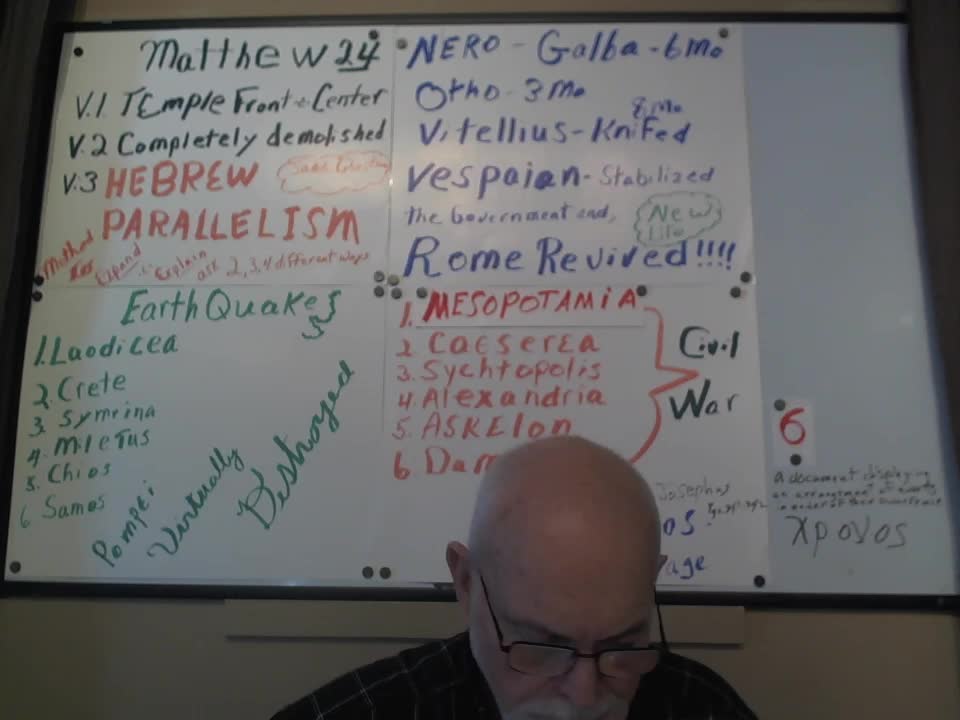 Matthew 24
V.1 TEmple Front + Center
V.2 Completely demolished
V.3 HEBREW
PARALLELISM
Method
Expand
Explain
2,3,4 different ways
NERO - Galba - 6mo
Otho - 3 Mo
8 Mo
Vitellius - Knifed
Vespaian - Stabilized
the Government and,
New
Life
Rome Revived!!!!
EarthQuakes
1. Laodicea
2. Crete
3. Symrina
4. Miletus
5. Chios
6 Samos
Pompei
Virtually
Destroyed
1. MESOPOTAMIA
2 Caeserea
3. Sychtopolis
4. Alexandria
5. ASKElon
6. Dam
Civil
War
Josephus
os
age
6
a document displaying
an arrangement of events
in order of their occurrence
χρονος